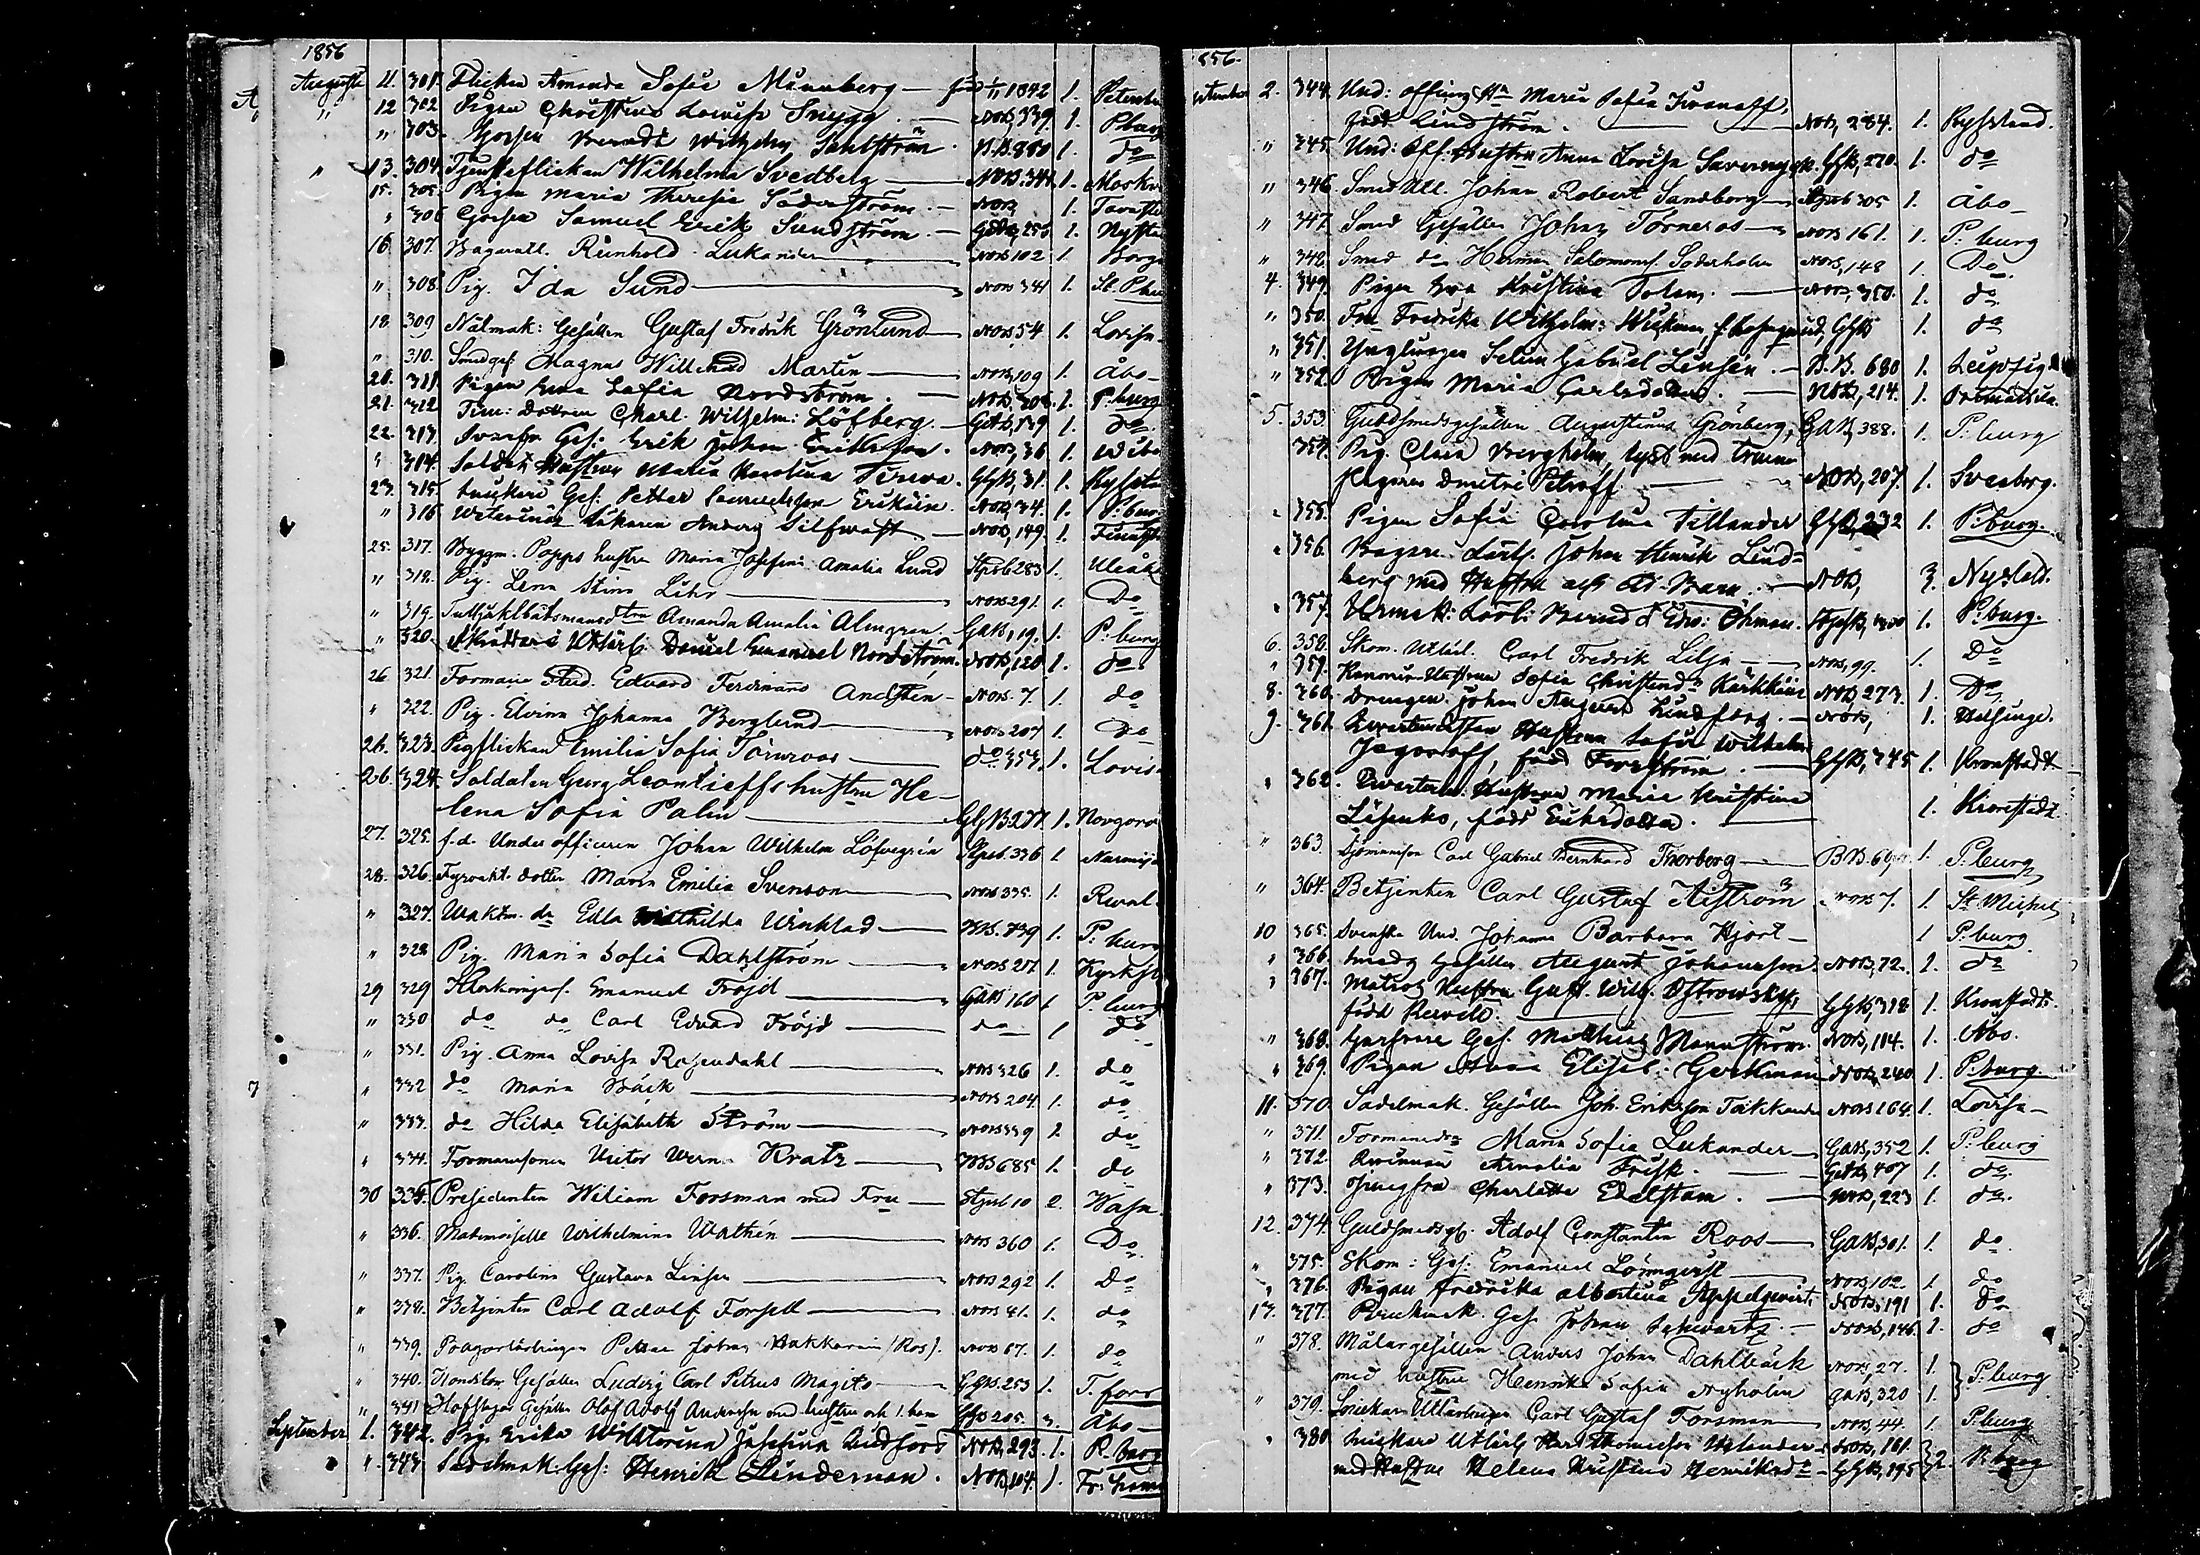 1856
Augusti 11. 301. Flickan Amanda Sofia Munnberg — född 1/11 1842 1.
" 12 302 Pigan Christina Lovisa Snygg. — NoB, 339. 1. Pburg
" 303. Gossen Berndt Wilhelm Sahlström. B.B. 800 1. do
" 13. 304. Tjensteflickan Wilhelma Svedberg — NoB. 344. 1. Moskv
15. 305. Pigan Maria Theresia Söderström. — NoB, 1. Tavaste
" 306 Gossen Samuel Erik Sundström. — GaB, 255 1. Nysta
16. 307. Bagarell. Reinhold Lukander — NoB 102 1. Borg
" 308. Pig. Ida Sund — NoB 341 1. St. Pbu
18. 309 Nålmak: Gesällen Gustaf Fredrik Grönlund — NoB 54 1. Lovisa
" 310. Smedges. Magnus Willehad Martin — NoB, 109 1. Åbo
20. 311. Pigan Eva Sofia Nordström. — NoB, 308. 1. P.burg
21. 312 Tim: Dottren Charl. Wilhelm: Löfberg. — GaB, 139 1. do
22. 313. Ges. Erik Johan Eriksson. NoB, 36 1. Wibo
" 314. Soldats Hustrun Maria Karolina GlgB, 31. 1. Ryssla
23. 315. Snickeri Ges: Petter Samuelsson NoB, 34. 1. P:bur
" 316 Veterinär Läkaren Anders Silfvast — NoB, 149. 1.
25. 317. Byggm. Popps hustru Maria Josefina Amalia Lund StpsB 283 1. Uleå
" 318. Pig. Lena Stina Lihr — NoB 291. 1. Do
" 319. Amanda Amalia Almgren. GaB, 19. 1. P:burg
" 320. Skräddare Utlärl. Daniel Emanuel Nordström. NoB, 120. 1. do
26. 321. Formans Stud. Edvard Ferdinand — NoB. 7. 1. do
" 322. Pig. Elvira Johanna Berglund — NoB 207 1. Do
26. 323. Pigflickan Emilia Sofia Törnroos — do 353. 1. Lovis
26. 324. Soldaten Georg Leontieffs hustru He-
lena Sofia Palin — GlgB 277. 1. Novgoro
27. 325. f.d. Underofficeren Johan Wilhelm Löfvegrén StpsB. 336 1
28. 326. Fyrvakt. dotter Maria Emilia Svenson — NoB 335. 1. Reval
" 327. Waktm. dr Edla Mathilda Winblad — BB. 739 1. P:burg
" 328 Pig. Maria Sofia Dahlström — NoB 27. 1. Kyrksl
29 329 Klockaregess. Emanuel Fröjd — GaB 160 1 P:burg
" 330 do do Carl Edvard Fröjd — do 1 do
" 331. Pig. Anna Lovisa Rosendahl — NoB 326 1. do
" 332 do Maria Bäck — NoB 204. 1. do
" 333. do Hilda Elisabeth Ström — NoB 339 1. do
" 334. Formanssonen Victor Werner Kratz — BB 685 1. do
30 335. Presidenten Wiliam Forsman med Fru — StpsB 10 2. Wasa
" 336. Mademoiselle Wilhelmina Wathén — NoB 360 1. Do
" 337. Pig. Carolina Gustava Linsén — NoB 292 1. Do
" 338. Betjenten Carl Adolf Forsell — NoB 41. 1. do
" 339. Petter Johan Hakkarain (Ros). NoB 67. 1. do
" 340. Konditor Gesällen Ludvig Carl Petrus Magito — GgB. 253 1. T.fors
" 341 Hofslagar Gesällen Olof Adolf Andersén med hustru och 1. barn 205. 3. Åbo
September 1. 342. Pig. Erika Wictorina Josefina Lindfors NoB, 293. 1. P.burg
". 343. Sadelmak: Ges: Henrik Linderman. NoB, 104. 1.
1856.
September 2. 344. Und: officers Dr Maria Sofia Ivanoff,
född Lindström. — NoB, 284. 1. Ryssland.
" 345. Und: Off: Hustru Anna Lovisa GlgB, 270. 1. do
" 346. Smed Utl. Johan Robert Sandberg — StpsB 305 1. Åbo
" 347. Smed Gesällen Johan Törneros — NoB 161. 1. P:burg
" 348. Smed do Herman Salomons. Söderholm NoB, 148 1. Do
4. 349. Pigan Eva Kristina — NoB, 350. 1. do
" 350. Fru Fredrika Wilhelm: Wickman, f. GlgB 1. do
" 351. Ynglingen Selim Gabriel Linsén. — B.B. 680 1. Leipzig
" 352. Pigan Maria Carlsdotter. — NoB, 214. 1.
5. 353. Guldsmedsgesällen Augustinus Grönberg, GaB, 388. 1. P:burg
354. Pig. Clara Bergholm, lyst med
Dmitri Petroff — NoB, 207. 1. Sveaborg.
" 355. Pigan Sofia Carolina Tillander GlgB, 232 1. P:burg.
" 356. Bagare Johan Henrik Lind-
berg med Hustru och Barn. — NoB, 3. Nyslott.
" 357. Urmak: Lärl: Bernd Edv: Öhman. 1. P:burg.
6. 358. Skom. Utlärl. Carl Fredrik Lilja — NoB, 99. 1. Do
" 359. Hustrun Sofia Christina Dr Kärkkäin NoB, 273. 1. Do
8. 360. Drengen Johan August Lindfors. — NoB, 1. Helsinge.
9. 361. Hustrun Sofia Wilhelm
Jegoroff, född Forsström. — GlgB, 345 1. Kronstadt
" 362. Hustrun Maria Kristina
född Eriksdotter. — 1. Kronstadt.
" 363. Sjömansson Carl Gabriel Bernhard Thorberg — BB. 1. P.burg
" 364. Betjenten Carl Gustaf Åström NoB 7. 1. St Michel
10 365. Svenska Und. Johanna Barbara Hjort — 1 P.burg
" 366. Smeds Gesällen August Johansson. NoB, 72. 1. do
" 367. Matros Hustru Gust. Wilh. Ostrowsky,
född GlgB, 318 1. Kronstadt.
" 368. Garfvare Ges. Mathias Mannström. NoB, 114. 1. Åbo.
" 369. Pigan Anna Elisab. Gerkman NoB, 240 1. P.burg
11. 370. Sadelmak. Gesällen Joh. Eriksson NoB 164. 1. Lovisa
" 371. Formansdr Maria Sofia Lukander — GaB, 352 1. P:burg
" 372. Qvinnan Amalia Frisk. — GaB, 407 1. do
" 373. Jungfru Charlotta Edelstam. — NoB, 223 1. do.
12. 374. Guldsmedsgs. Adolf Constantin Roos — GaB, 301. 1. do
" 375. Skom: Ges: Emanuel Lönnqvist — NoB, 102. 1. do
" 376. Pigan Fredrika Albertina Appelqvist. NoB, 191 1. do
13. 377. Ges. Johan Schwartz. — NoB, 146 1. do
" 378. Målargesällen Anders Johan Dahlbäck NoB, 27. 1.
med hustru Henrika Sofia Nyholm GaB, 320 1. P:burg
" 379. Snickare Utlärlingen Carl Gustaf Forsman — NoB, 44. 1. P:burg
" 380. Snickare Utlärl. Karl Thomasson NoB, 161.
med Hustru Helena Kristina Henriksdr — GlgB, 195 2. P:burg